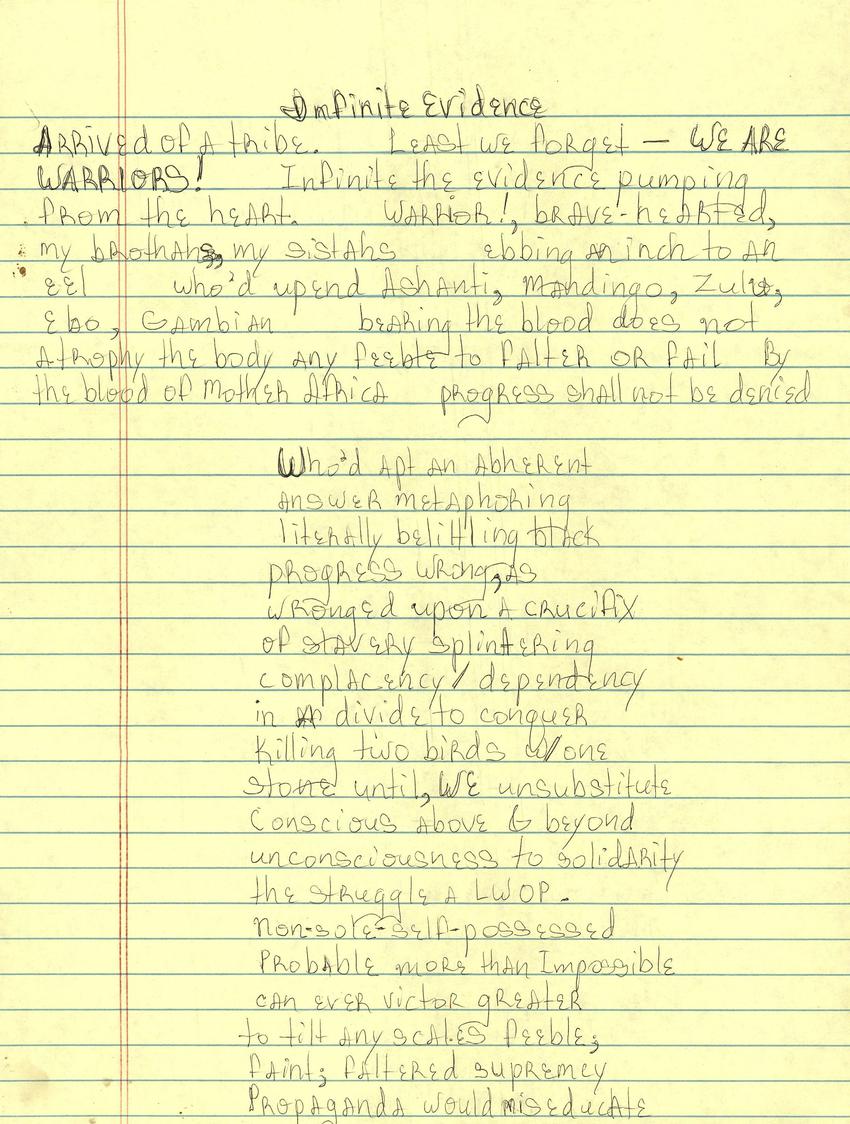 Infinite Evidence
Arrived of A tribe. Least we forget — WE ARE
WARRIORS! Infinite the evidence pumping
from the heart. WARRIOR!, brave-hearted,
my brothahs, my sistahs ebbing an inch to an
eel who'd upend Ashanti, Mandingo, Zulu,
Ebo, Gambian bearing the blood does not
Atrophy the body any feeble to falter or fail By
the blood of Mother Africa progress shall not be denied
Who'd apt an Abherent
answer metaphoring
literally belittling black
progress wrong, as
wronged upon a crucifix
of slavery splintering
complacency / dependency
in divide to conquer
Killing two birds w/one
stone until, WE unsubstitute
Conscious above & beyond
unconsciousness to solidarity
the struggle a LWOP.
Non-sole-self-possessed
Probable more than Impossible
can ever victor greater
to tilt any scales feeble;
faint; faltered supremcy
Propaganda would miseducate